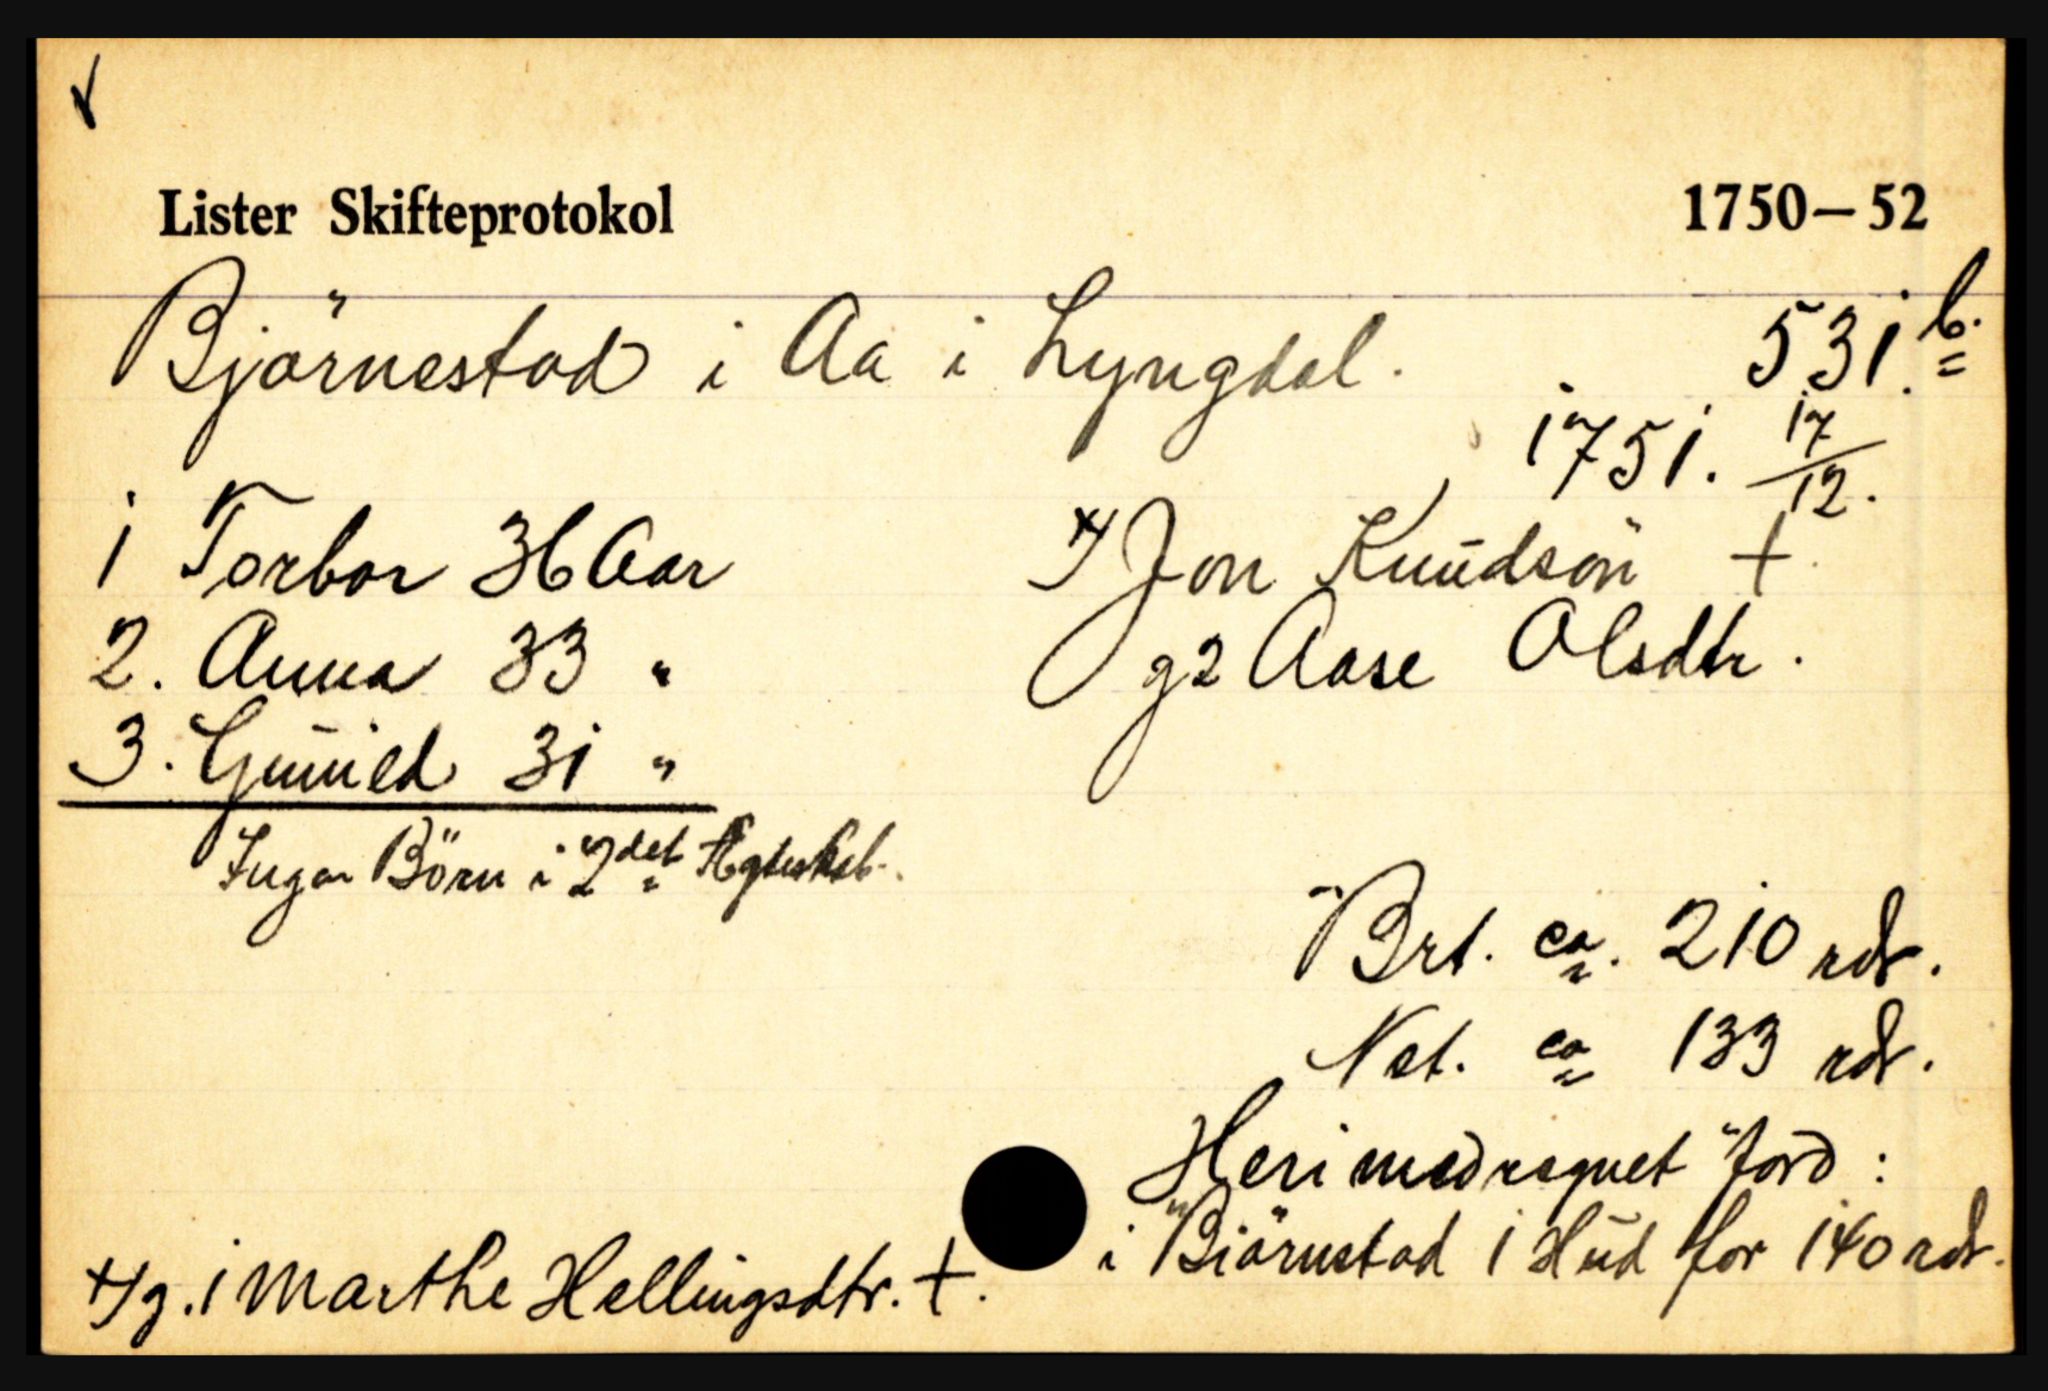 Lister Skifteprotokol 1750–52
Bjørnestad i Aa i Lyngdal. 531.b.
1751. 17/12.
1 Torbor 36 Aar
2. Anna 33 "
3. Gunild 31 "
Ingen Börn i 2det Ægteskab.
+/ Jon Knudsön +
g2 Aase Olsdtr.
Brt. ca. 210 rdr.
Net. ca 133 rdr.
Heri medregnet Jord:
i Biörnestad 1 Hud for 140 rdr.
+/g. 1 Marthe Hellingsdtr. +.